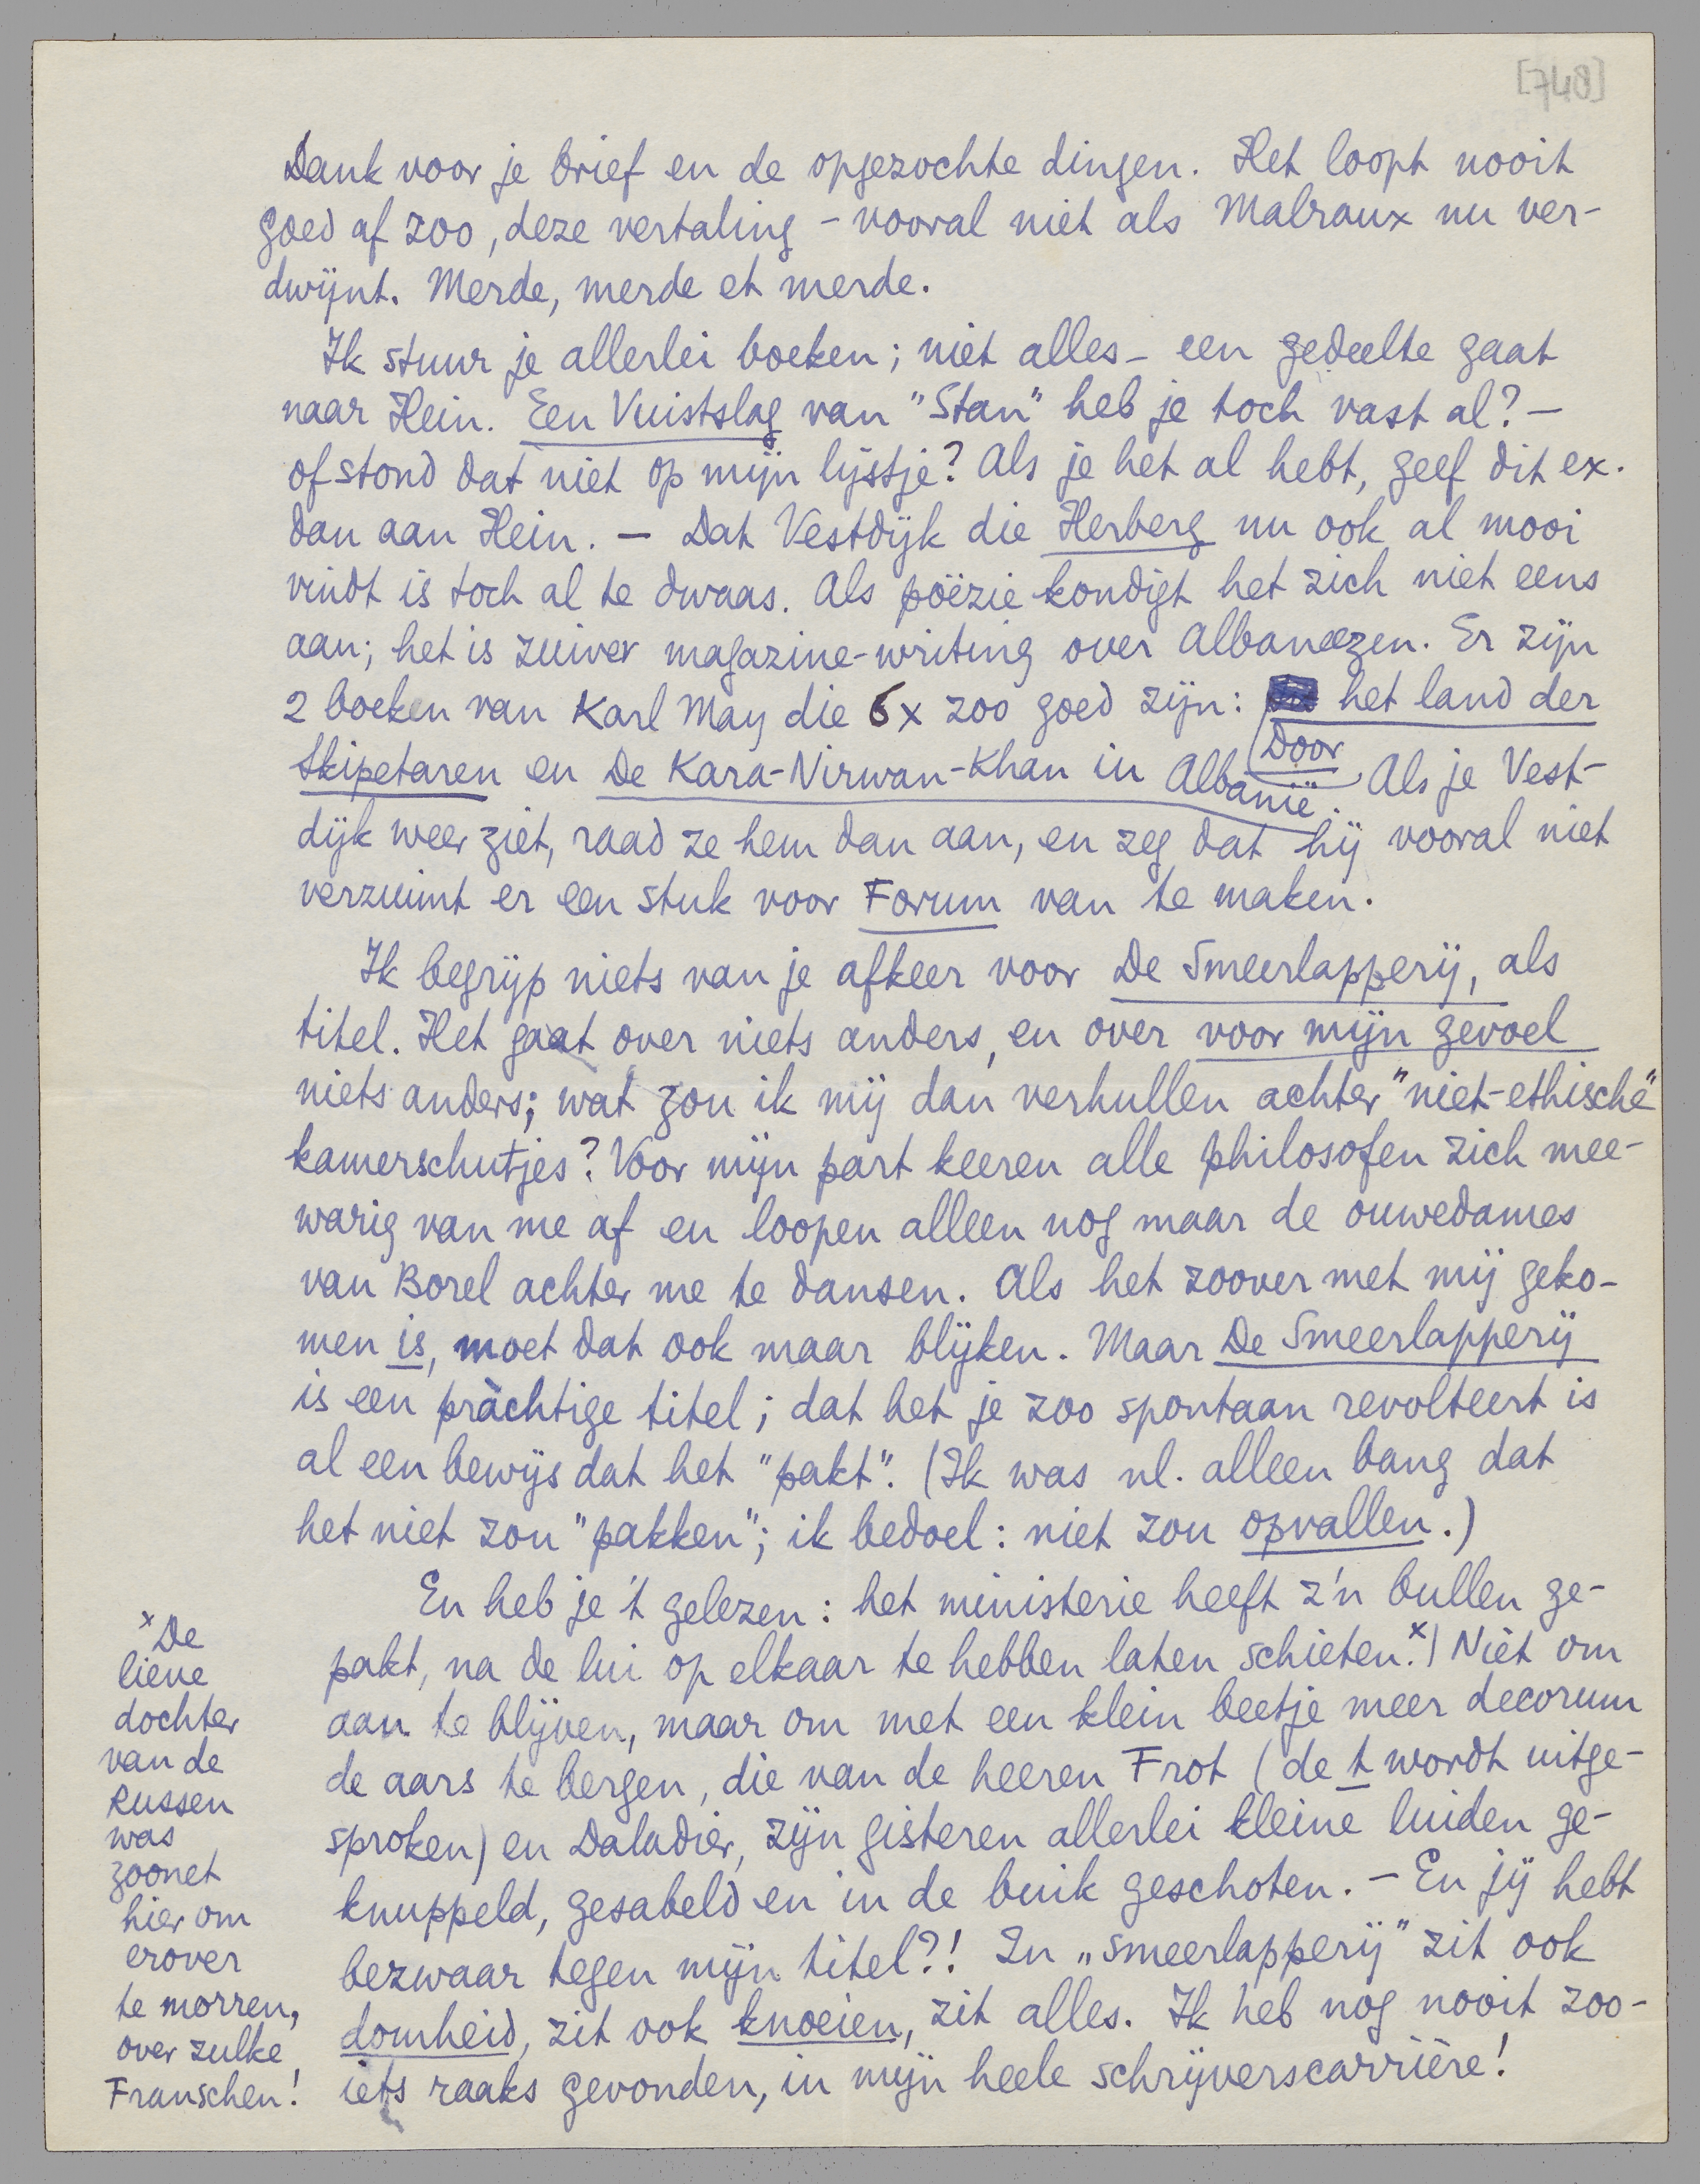 [748]
Dank voor je brief en de opgezochte dingen. Het loopt nooit
goed af zoo, deze vertaling – vooral niet als Malraux nu ver-
dwijnt. Merde, merde et merde.
Ik stuur je allerlei boeken; niet alles – een gedeelte gaat
naar Hein. Een Vuistslag van "Stan" heb je toch vast al? –
of stond dat niet op mijn lijstje? Als je het al hebt, geef dit ex.
dan aan Hein. – Dat Vestdijk die Herberg nu ook al mooi
vindt is toch al te dwaas. Als poëzie kondigt het zich niet eens
aan; het is zuiver magazine-writing over Albaneezen. Er zijn
2 boeken van Karl May die 6x zoo goed zijn: Door het land der
Skipetaren en De Kara-Nirwan-Khan in Albanië. Als je Vest-
dijk weer ziet, raad ze hem dan aan, en zeg dat hij vooral niet
verzuimt er een stuk voor Forum van te maken.
Ik begrijp niets van je afkeer voor De Smeerlapperij, als
titel. Het gaat over niets anders, en over voor mijn gevoel
niets anders; wat zou ik mij dan verhullen achter "niet-ethische"
kamerschutjes? Voor mijn part keeren alle philosofen zich mee-
warig van me af en loopen alleen nog maar de ouwedames
van Borel achter me te dansen. Als het zoover met mij geko-
men is, moet dat ook maar blijken. Maar De Smeerlapperij
is een pràchtige titel; dat het je zoo spontaan revolteert is
al een bewijs dat het "pakt". (Ik was nl. alleen bang dat
het niet zou "pakken"; ik bedoel: niet zou opvallen.)
En heb je 't gelezen: het ministerie heeft z'n bullen ge-
pakt, na de lui op elkaar te hebben laten schieten.x) Niet om
aan te blijven, maar om met een klein beetje meer decorum
de aars te bergen, die van de heeren Frot (de t wordt uitge-
sproken) en Daladier, zijn gisteren allerlei kleine luiden ge-
knuppeld, gesabeld en in de buik geschoten. – En jij hebt
bezwaar tegen mijn titel?! In „smeerlapperij" zit ook
domheid, zit ook knoeien, zit alles. Ik heb nog nooit zoo-
iets raaks gevonden, in mijn heele schrijverscarrière!
x De
lieve
dochter
van de
Russen
was
zoonet
hier om
erover
te morren,
over zulke
Franschen!